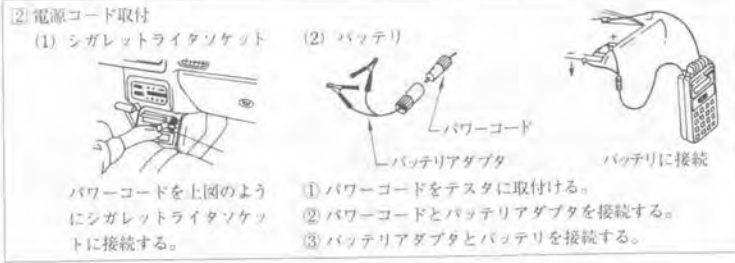 2 電源コード取付
(1) シガレットライタソケット
パワーコードを上図のよう
にシガレットライタソケッ
トに接続する。
(2) バッテリ
パワーコード
バッテリアダプタ
+
-
バッテリに接続
① パワーコードをテスタに取付ける。
② パワーコードとバッテリアダプタを接続する。
③ バッテリアダプタとバッテリを接続する。